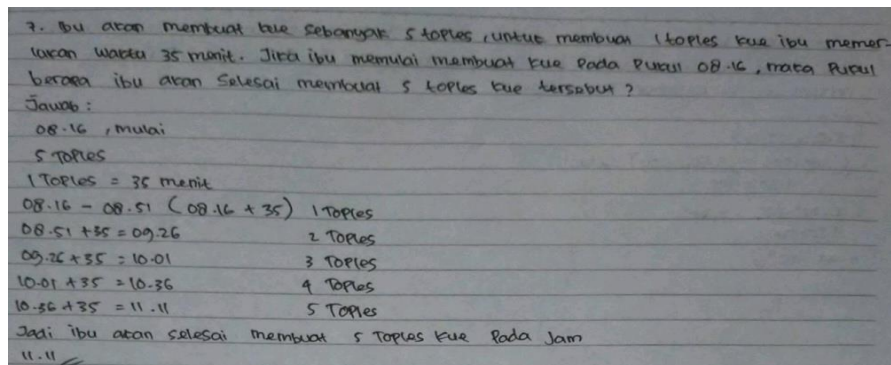 7. Ibu akan membuat kue sebanyak 5 toples, untuk membuat 1 toples kue ibu memer-
lukan waktu 35 menit. Jika ibu memulai membuat kue Pada Pukul 08.16, maka Pukul
berapa ibu akan Selesai membuat 5 toples kue tersebut ?
Jawab :
08.16 , mulai
5 Toples
1 Toples = 35 menit
08.16 - 08.51 ( 08.16 + 35) 1 Toples
08.51 +35 = 09.26 2 Toples
09.26 +35 = 10.01 3 Toples
10.01 +35 = 10.36 4 Toples
10.36 +35 = 11.11 5 Toples
Jadi ibu akan selesai membuat 5 Toples kue Pada Jam
11.11